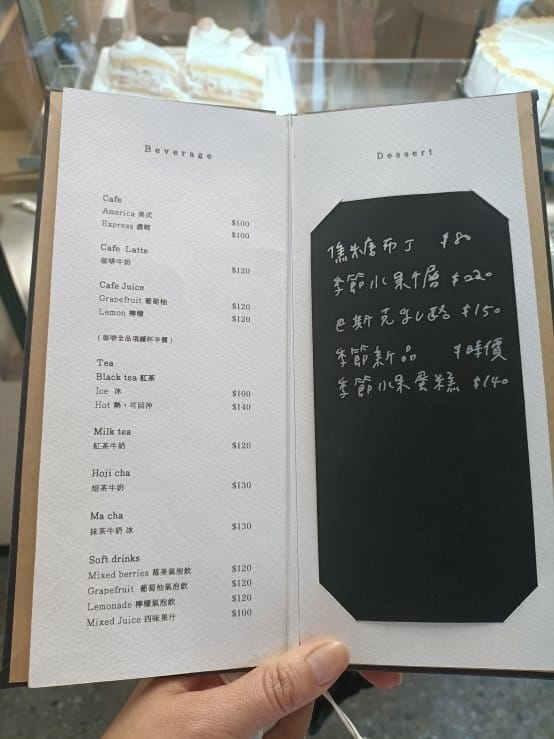 Beverage
Cafe
America 美式 $100
Express 濃縮 $100
Cafe Latte
咖啡牛奶 $120
Cafe Juice
Grapefruit 葡萄柚 $120
Lemon 檸檬 $120
(咖啡全品項續杯半價)
Tea
Black tea 紅茶
Ice 冰 $100
Hot 熱，可回沖 $140
Milk tea
紅茶牛奶 $120
Hoji cha
焙茶牛奶 $130
Ma cha
抹茶牛奶 冰 $130
Soft drinks
Mixed berries 莓果氣泡飲 $120
Grapefruit 葡萄柚氣泡飲 $120
Lemonade 檸檬氣泡飲 $120
Mixed Juice 四味果汁 $100
Dessert
焦糖布丁 $80
季節水果千層 $220
巴斯克乳酪 $150
季節新品 $時價
季節水果蛋糕 $140